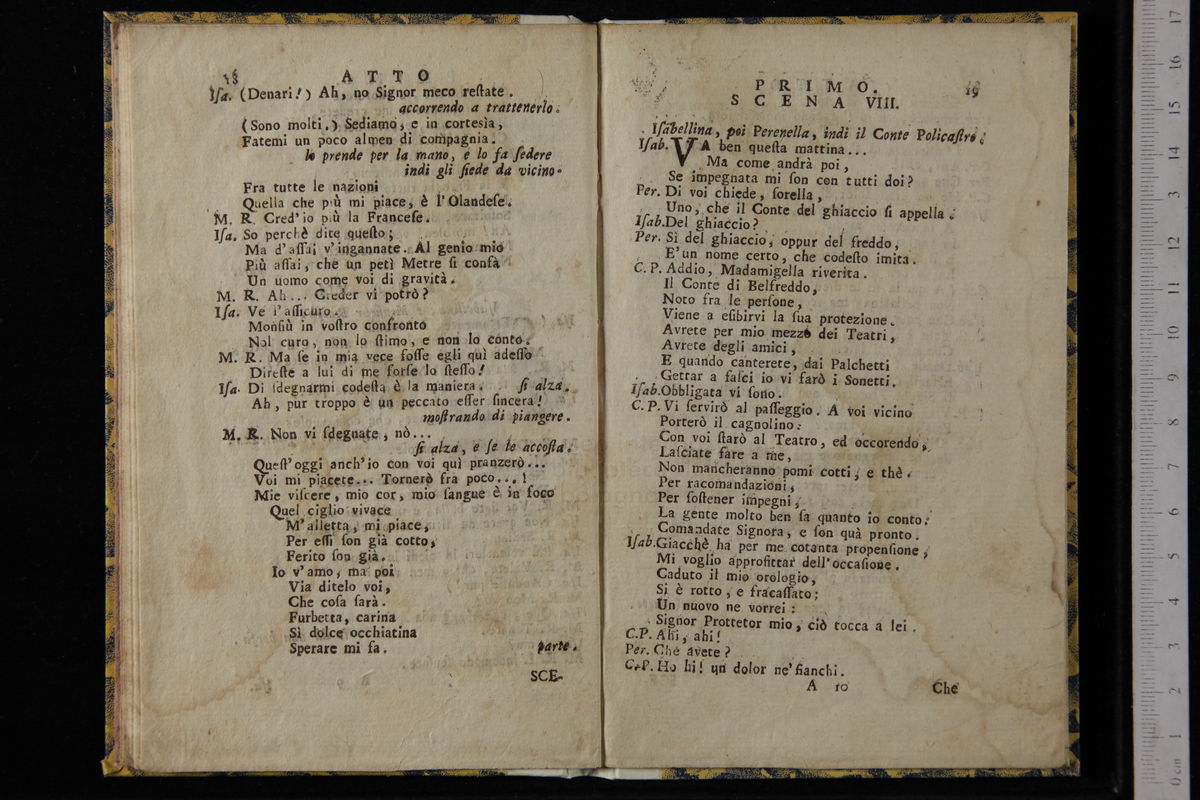 18
ATTO
Isa. (Denari!) Ah, no Signor meco reſtate.
accorrendo a trattenerlo.
(Sono molti.) Sediamo, e in cortesìa,
Fatemi un poco almen di compagnia.
lo prende per la mano, e lo fa ſedere
indi gli ſiede da vicino.
Fra tutte le nazioni
Quella che più mi piace, è l'Olandeſe.
M. R. Cred'io più la Franceſe.
Iſa. So perchè dite queſto;
Ma d'aſſai v'ingannate. Al genio mio
Più aſſai, che un petì Metre ſi confà
Un uomo come voi di gravità.
M. R. Ah... Creder vi potrò?
Iſa. Ve l'aſſicuro.
Monſiù in voſtro confronto
Nol curo, non lo ſtimo, e non lo conto.
M. R. Ma ſe in mia vece foſſe egli quì adeſſo
Direſte a lui di me forſe lo ſteſſo!
Iſa. Di ſdegnarmi codeſta è la maniera. ſi alza.
Ah, pur troppo è un peccato eſſer ſincera!
moſtrando di piangere.
M. R. Non vi ſdegnate, nò...
ſi alza, e ſe le accoſta.
Queſt'oggi anch'io con voi quì pranzerò...
Voi mi piacete... Tornerò fra poco...!
Mie viſcere, mio cor, mio ſangue è in foco
Quel ciglio vivace
M'alletta, mi piace,
Per eſſi ſon già cotto,
Ferito ſon già.
Io v'amo, ma poi
Via ditelo voi,
Che coſa ſarà.
Furbetta, carina
Sì dolce occhiatina
Sperare mi fa. parte.
SCE-
PRIMO. 19
SCENA VIII.
Iſabellina, poi Perenella, indi il Conte Policaſtro.
Iſab. VA ben queſta mattina...
Ma come andrà poi,
Se impegnata mi ſon con tutti doi?
Per. Di voi chiede, ſorella,
Uno, che il Conte del ghiaccio ſi appella.
Iſab. Del ghiaccio?
Per. Sì del ghiaccio, oppur del freddo,
E'un nome certo, che codeſto imita.
C. P. Addio, Madamigella riverita.
Il Conte di Belfreddo,
Noto fra le perſone,
Viene a eſibirvi la ſua protezione.
Avrete per mio mezzo dei Teatri,
Avrete degli amici,
E quando canterete, dai Palchetti
Gettar a faſci io vi farò i Sonetti.
Iſab. Obbligata vi ſono.
C. P. Vi ſervirò al paſſeggio. A voi vicino
Porterò il cagnolino:
Con voi ſtarò al Teatro, ed occorendo,
Laſciate fare a me,
Non mancheranno pomi cotti, e thè.
Per racomandazioni,
Per ſoſtener impegni,
La gente molto ben ſa quanto io conto.
Comandate Signora, e ſon quà pronto.
Iſab. Giacchè ha per me cotanta propenſione,
Mi voglio approfittar dell'occaſione.
Caduto il mio orologio,
Si è rotto, e fracaſſato:
Un nuovo ne vorrei:
Signor Prottetor mio, ciò tocca a lei.
C.P. Ahi, ahi!
Per. Che avete?
C.P. Ho hi! un dolor ne'fianchi.
A 10 Che